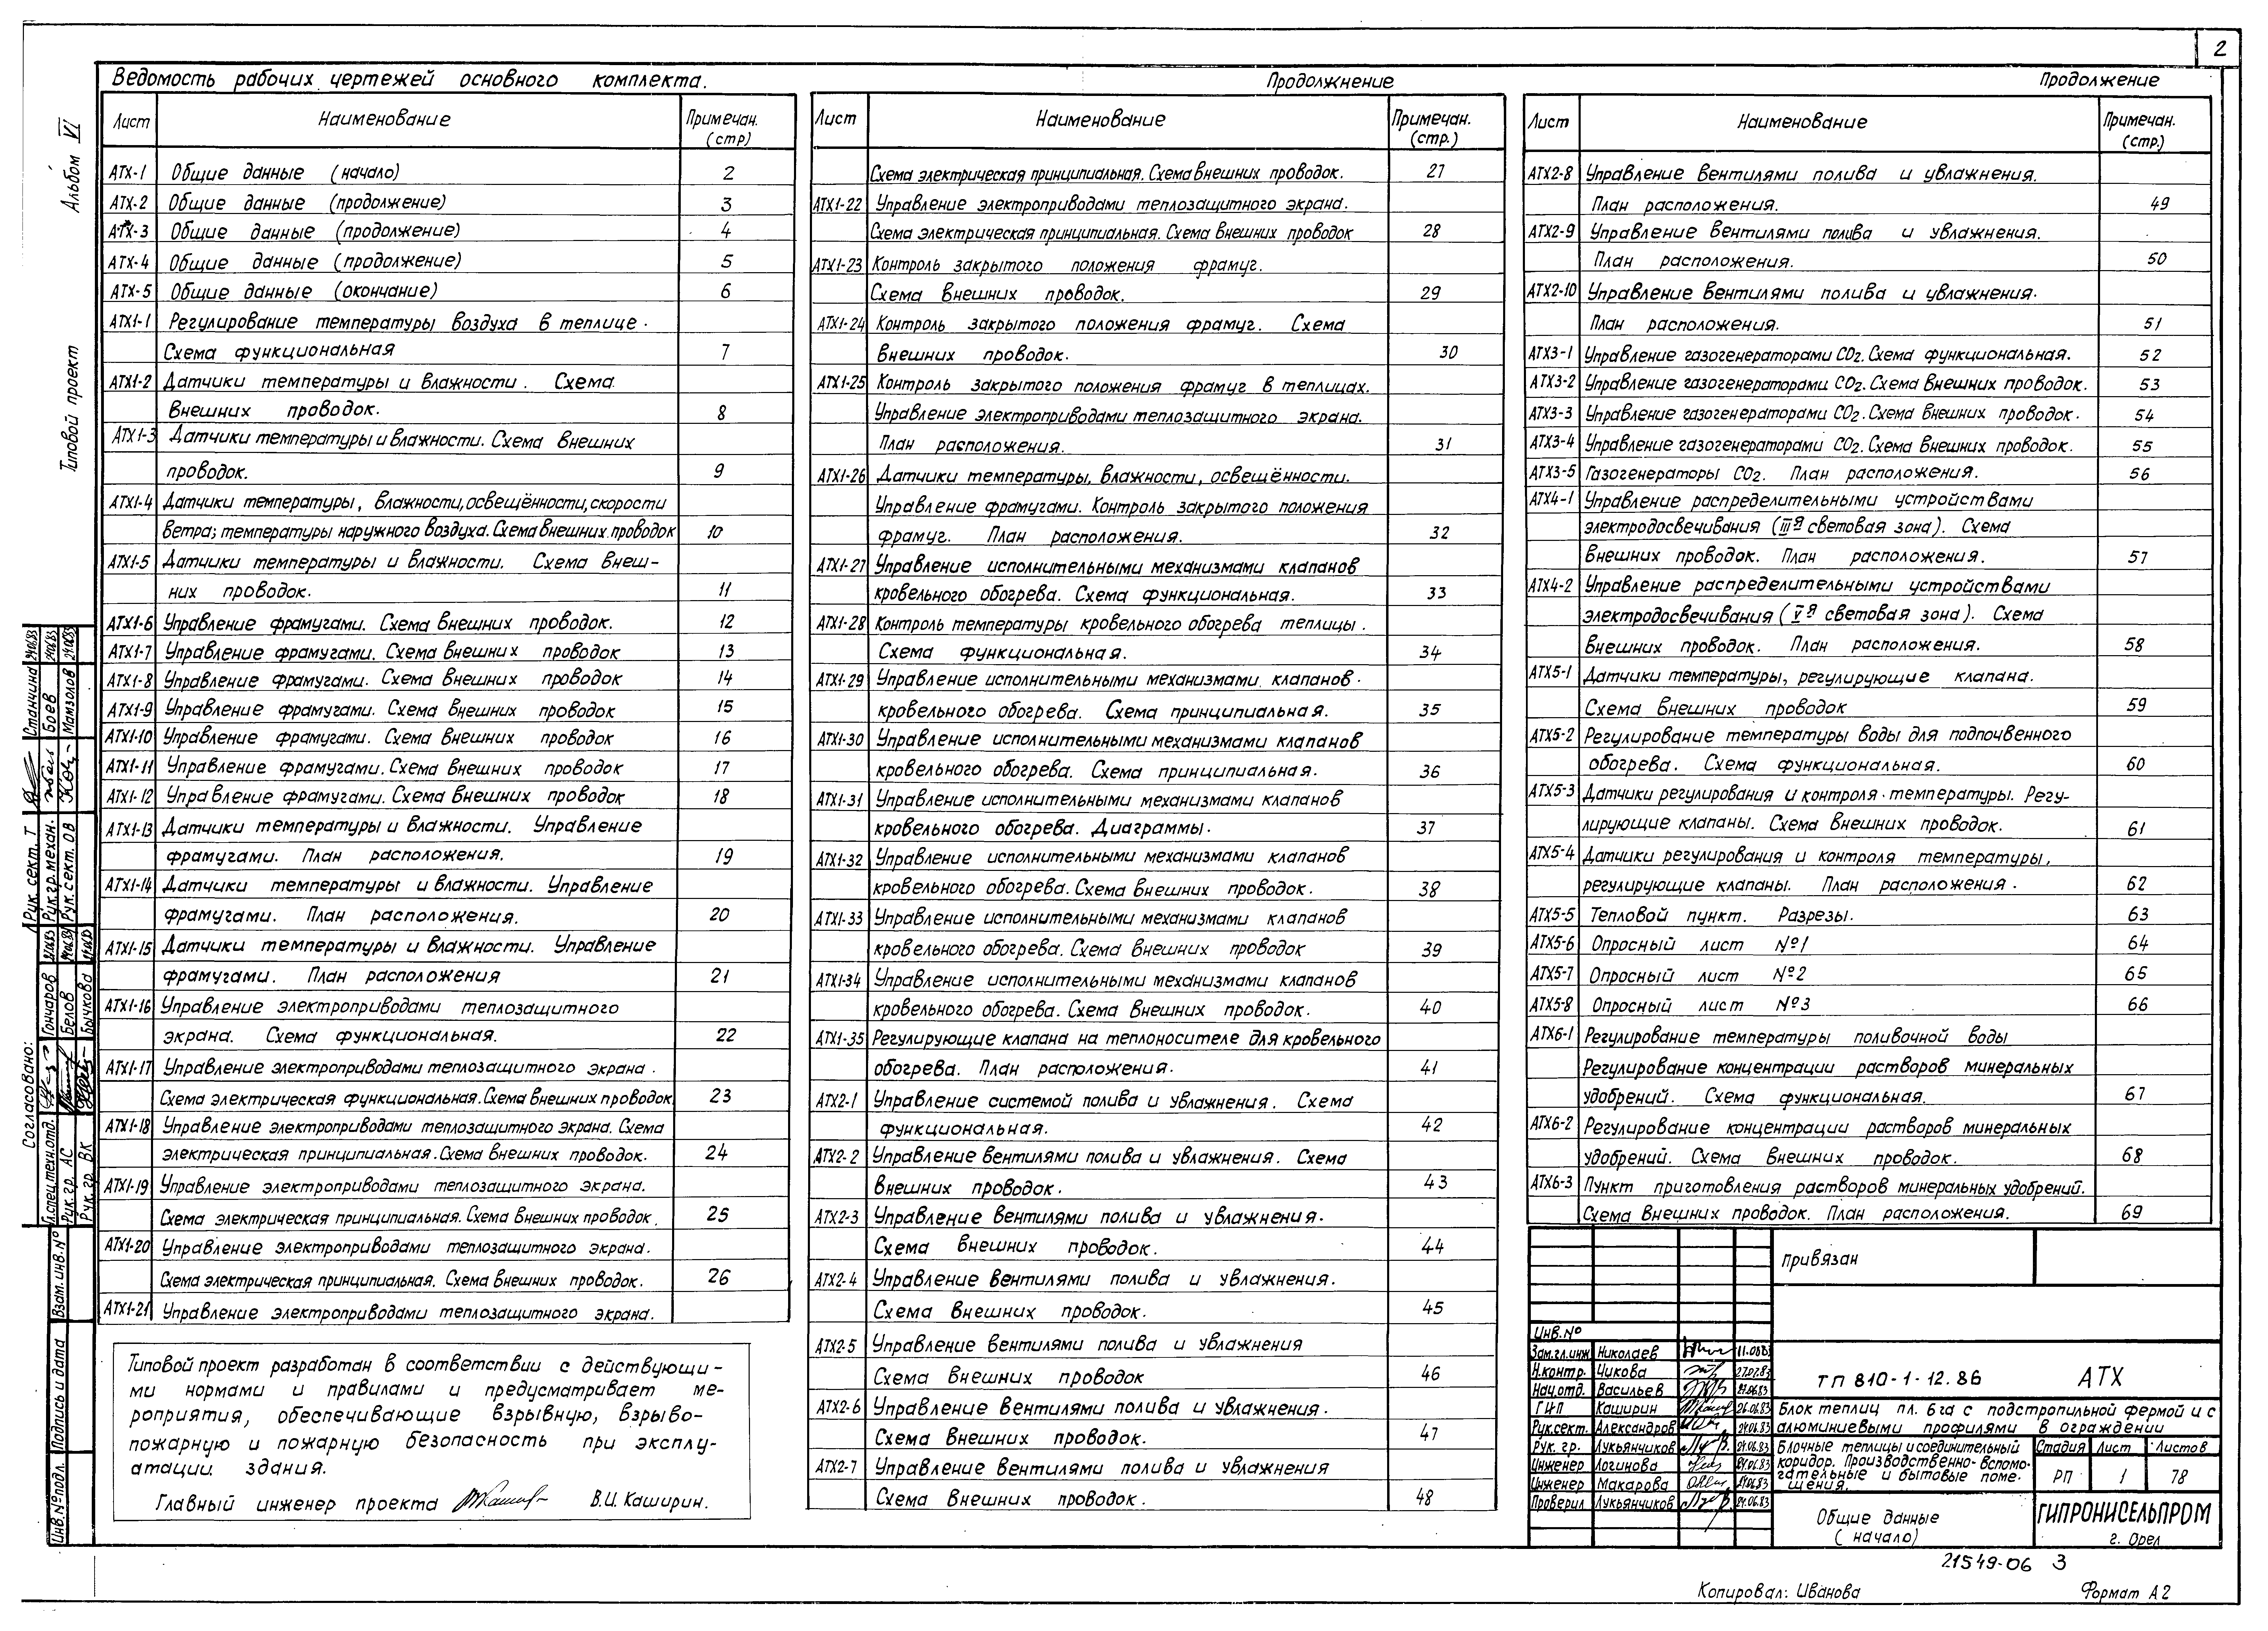 2
Альбом VI
Типовой проект
Ведомость рабочих чертежей основного комплекта.
Лист Наименование Примечан. (стр)
АТХ-1 Общие данные (начало) 2
АТХ-2 Общие данные (продолжение) 3
АТХ-3 Общие данные (продолжение) 4
АТХ-4 Общие данные (продолжение) 5
АТХ-5 Общие данные (окончание) 6
АТХ1-1 Регулирование температуры воздуха в теплице.
Схема функциональная 7
АТХ1-2 Датчики температуры и влажности. Схема
внешних проводок. 8
АТХ1-3 Датчики температуры и влажности. Схема внешних
проводок. 9
АТХ1-4 Датчики температуры, влажности, освещённости, скорости
ветра; температуры наружного воздуха. Схема внешних проводок 10
АТХ1-5 Датчики температуры и влажности. Схема внеш-
них проводок. 11
АТХ1-6 Управление фрамугами. Схема внешних проводок. 12
АТХ1-7 Управление фрамугами. Схема внешних проводок 13
АТХ1-8 Управление фрамугами. Схема внешних проводок 14
АТХ1-9 Управление фрамугами. Схема внешних проводок 15
АТХ1-10 Управление фрамугами. Схема внешних проводок 16
АТХ1-11 Управление фрамугами. Схема внешних проводок 17
АТХ1-12 Управление фрамугами. Схема внешних проводок 18
АТХ1-13 Датчики температуры и влажности. Управление
фрамугами. План расположения. 19
АТХ1-14 Датчики температуры и влажности. Управление
фрамугами. План расположения. 20
АТХ1-15 Датчики температуры и влажности. Управление
фрамугами. План расположения 21
АТХ1-16 Управление электроприводами теплозащитного
экрана. Схема функциональная. 22
АТХ1-17 Управление электроприводами теплозащитного экрана.
Схема электрическая функциональная. Схема внешних проводок. 23
АТХ1-18 Управление электроприводами теплозащитного экрана. Схема
электрическая принципиальная. Схема внешних проводок. 24
АТХ1-19 Управление электроприводами теплозащитного экрана.
Схема электрическая принципиальная. Схема внешних проводок. 25
АТХ1-20 Управление электроприводами теплозащитного экрана.
Схема электрическая принципиальная. Схема внешних проводок. 26
АТХ1-21 Управление электроприводами теплозащитного экрана.
Типовой проект разработан в соответствии с действующи-
ми нормами и правилами и предусматривает ме-
роприятия, обеспечивающие взрывную, взрыво-
пожарную и пожарную безопасность при эксплу-
атации здания.
Главный инженер проекта В.И. Каширин.
Продолжнение
Лист Наименование Примечан. (стр.)
Схема электрическая принципиальная. Схема внешних проводок. 27
АТХ1-22 Управление электроприводами теплозащитного экрана.
Схема электрическая принципиальная. Схема внешних проводок 28
АТХ1-23 Контроль закрытого положения фрамуг.
Схема внешних проводок. 29
АТХ1-24 Контроль закрытого положения фрамуг. Схема
внешних проводок. 30
АТХ1-25 Контроль закрытого положения фрамуг в теплицах.
Управление электроприводами теплозащитного экрана.
План расположения. 31
АТХ1-26 Датчики температуры, влажности, освещённости.
Управление фрамугами. Контроль закрытого положения
фрамуг. План расположения. 32
АТХ1-27 Управление исполнительными механизмами клапанов
кровельного обогрева. Схема функциональная. 33
АТХ1-28 Контроль температуры кровельного обогрева теплицы.
Схема функциональная. 34
АТХ1-29 Управление исполнительными механизмами клапанов.
кровельного обогрева. Схема принципиальная. 35
АТХ1-30 Управление исполнительными механизмами клапанов
кровельного обогрева. Схема принципиальная. 36
АТХ1-31 Управление исполнительными механизмами клапанов
кровельного обогрева. Диаграммы. 37
АТХ1-32 Управление исполнительными механизмами клапанов
кровельного обогрева. Схема внешних проводок. 38
АТХ1-33 Управление исполнительными механизмами клапанов
кровельного обогрева. Схема внешних проводок 39
АТХ1-34 Управление исполнительными механизмами клапанов
кровельного обогрева. Схема внешних проводок. 40
АТХ1-35 Регулирующие клапана на теплоносителе для кровельного
обогрева. План расположения. 41
АТХ2-1 Управление системой полива и увлажнения. Схема
функциональная. 42
АТХ2-2 Управление вентилями полива и увлажнения. Схема
внешних проводок. 43
АТХ2-3 Управление вентилями полива и увлажнения.
Схема внешних проводок. 44
АТХ2-4 Управление вентилями полива и увлажнения.
Схема внешних проводок. 45
АТХ2-5 Управление вентилями полива и увлажнения
Схема внешних проводок 46
АТХ2-6 Управление вентилями полива и увлажнения.
Схема внешних проводок. 47
АТХ2-7 Управление вентилями полива и увлажнения
Схема внешних проводок. 48
Продолжение
Лист Наименование Примечан. (стр.)
АТХ2-8 Управление вентилями полива и увлажнения.
План расположения. 49
АТХ2-9 Управление вентилями полива и увлажнения.
План расположения. 50
АТХ2-10 Управление вентилями полива и увлажнения.
План расположения. 51
АТХ3-1 Управление газогенераторами СО2. Схема функциональная. 52
АТХ3-2 Управление газогенераторами СО2. Схема внешних проводок. 53
АТХ3-3 Управление газогенераторами СО2. Схема внешних проводок. 54
АТХ3-4 Управление газогенераторами СО2. Схема внешних проводок. 55
АТХ3-5 Газогенераторы СО2. План расположения. 56
АТХ4-1 Управление распределительными устройствами
электродосвечивания (IIIя световая зона). Схема
внешних проводок. План расположения. 57
АТХ4-2 Управление распределительными устройствами
электродосвечивания (Vя световая зона). Схема
внешних проводок. План расположения. 58
АТХ5-1 Датчики температуры, регулирующие клапана.
Схема внешних проводок 59
АТХ5-2 Регулирование температуры воды для подпочвенного
обогрева. Схема функциональная. 60
АТХ5-3 Датчики регулирования и контроля температуры. Регу-
лирующие клапаны. Схема внешних проводок. 61
АТХ5-4 Датчики регулирования и контроля температуры,
регулирующие клапаны. План расположения. 62
АТХ5-5 Тепловой пункт. Разрезы. 63
АТХ5-6 Опросный лист №1 64
АТХ5-7 Опросный лист №2 65
АТХ5-8 Опросный лист №3 66
АТХ6-1 Регулирование температуры поливочной воды
Регулирование концентрации растворов минеральных
удобрений. Схема функциональная. 67
АТХ6-2 Регулирование концентрации растворов минеральных
удобрений. Схема внешних проводок. 68
АТХ6-3 Пункт приготовления растворов минеральных удобрений.
Схема внешних проводок. План расположения. 69
Привязан
Инв.№
Зам.гл.инж Николаев
Н.контр. Чикова 27.07.83
Нач.отд. Васильев
ГИП Каширин 26.06.83
Рук.сект. Александров 24.06.83
Рук. гр. Лукьянчиков 24.06.83
Инженер Логинова 24.06.83
Инженер Макарова 24.06.83
Проверил Лукьянчиков 24.06.83
ТП 810-1-12.86 АТХ
Блок теплиц пл. 6 га с подстропильной фермой и с
алюминиевыми профилями в ограждении
Блочные теплицы и соединительный
коридор. Производственно-вспомо-
гательные и бытовые поме-
щения.
Стадия Лист Листов
РП 1 78
Общие данные
(начало)
ГИПРОНИСЕЛЬПРОМ
г. Орел
21549-06 3
Копировал: Иванова Формат А2
Согласовано:
Рук. сект. Т Станчина 24.06.83
Рук.гр.механ. Боев 24.06.83
Рук.сект. ОВ Мамзолов 24.06.83
Гл.спец.техн.отд. Гончаров
Рук.гр. АС Белов
Рук.гр. ВК Бычкова
Взам.инв.№
Подпись и дата
Инв.№подл.